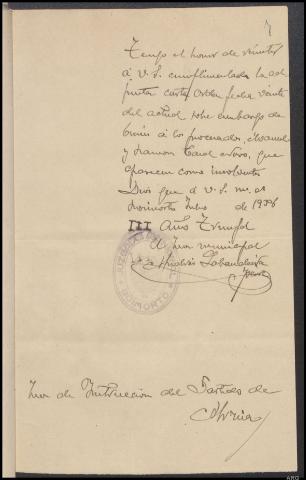 Tengo el honor de remitir
á V.S. cumplimentada la ad
junta carta orden fecha veinte
del actual sobre embargo de
bienes á los procesados, Manuel
y Ramon Carol Novo, que
aparecen como insolventes
Dios que á V.S. m. as
Julio de 1938
III Año Triunfal
El Juez municipal
JUZGADO MUNICIPAL
Juez de Instrucción del Partido de